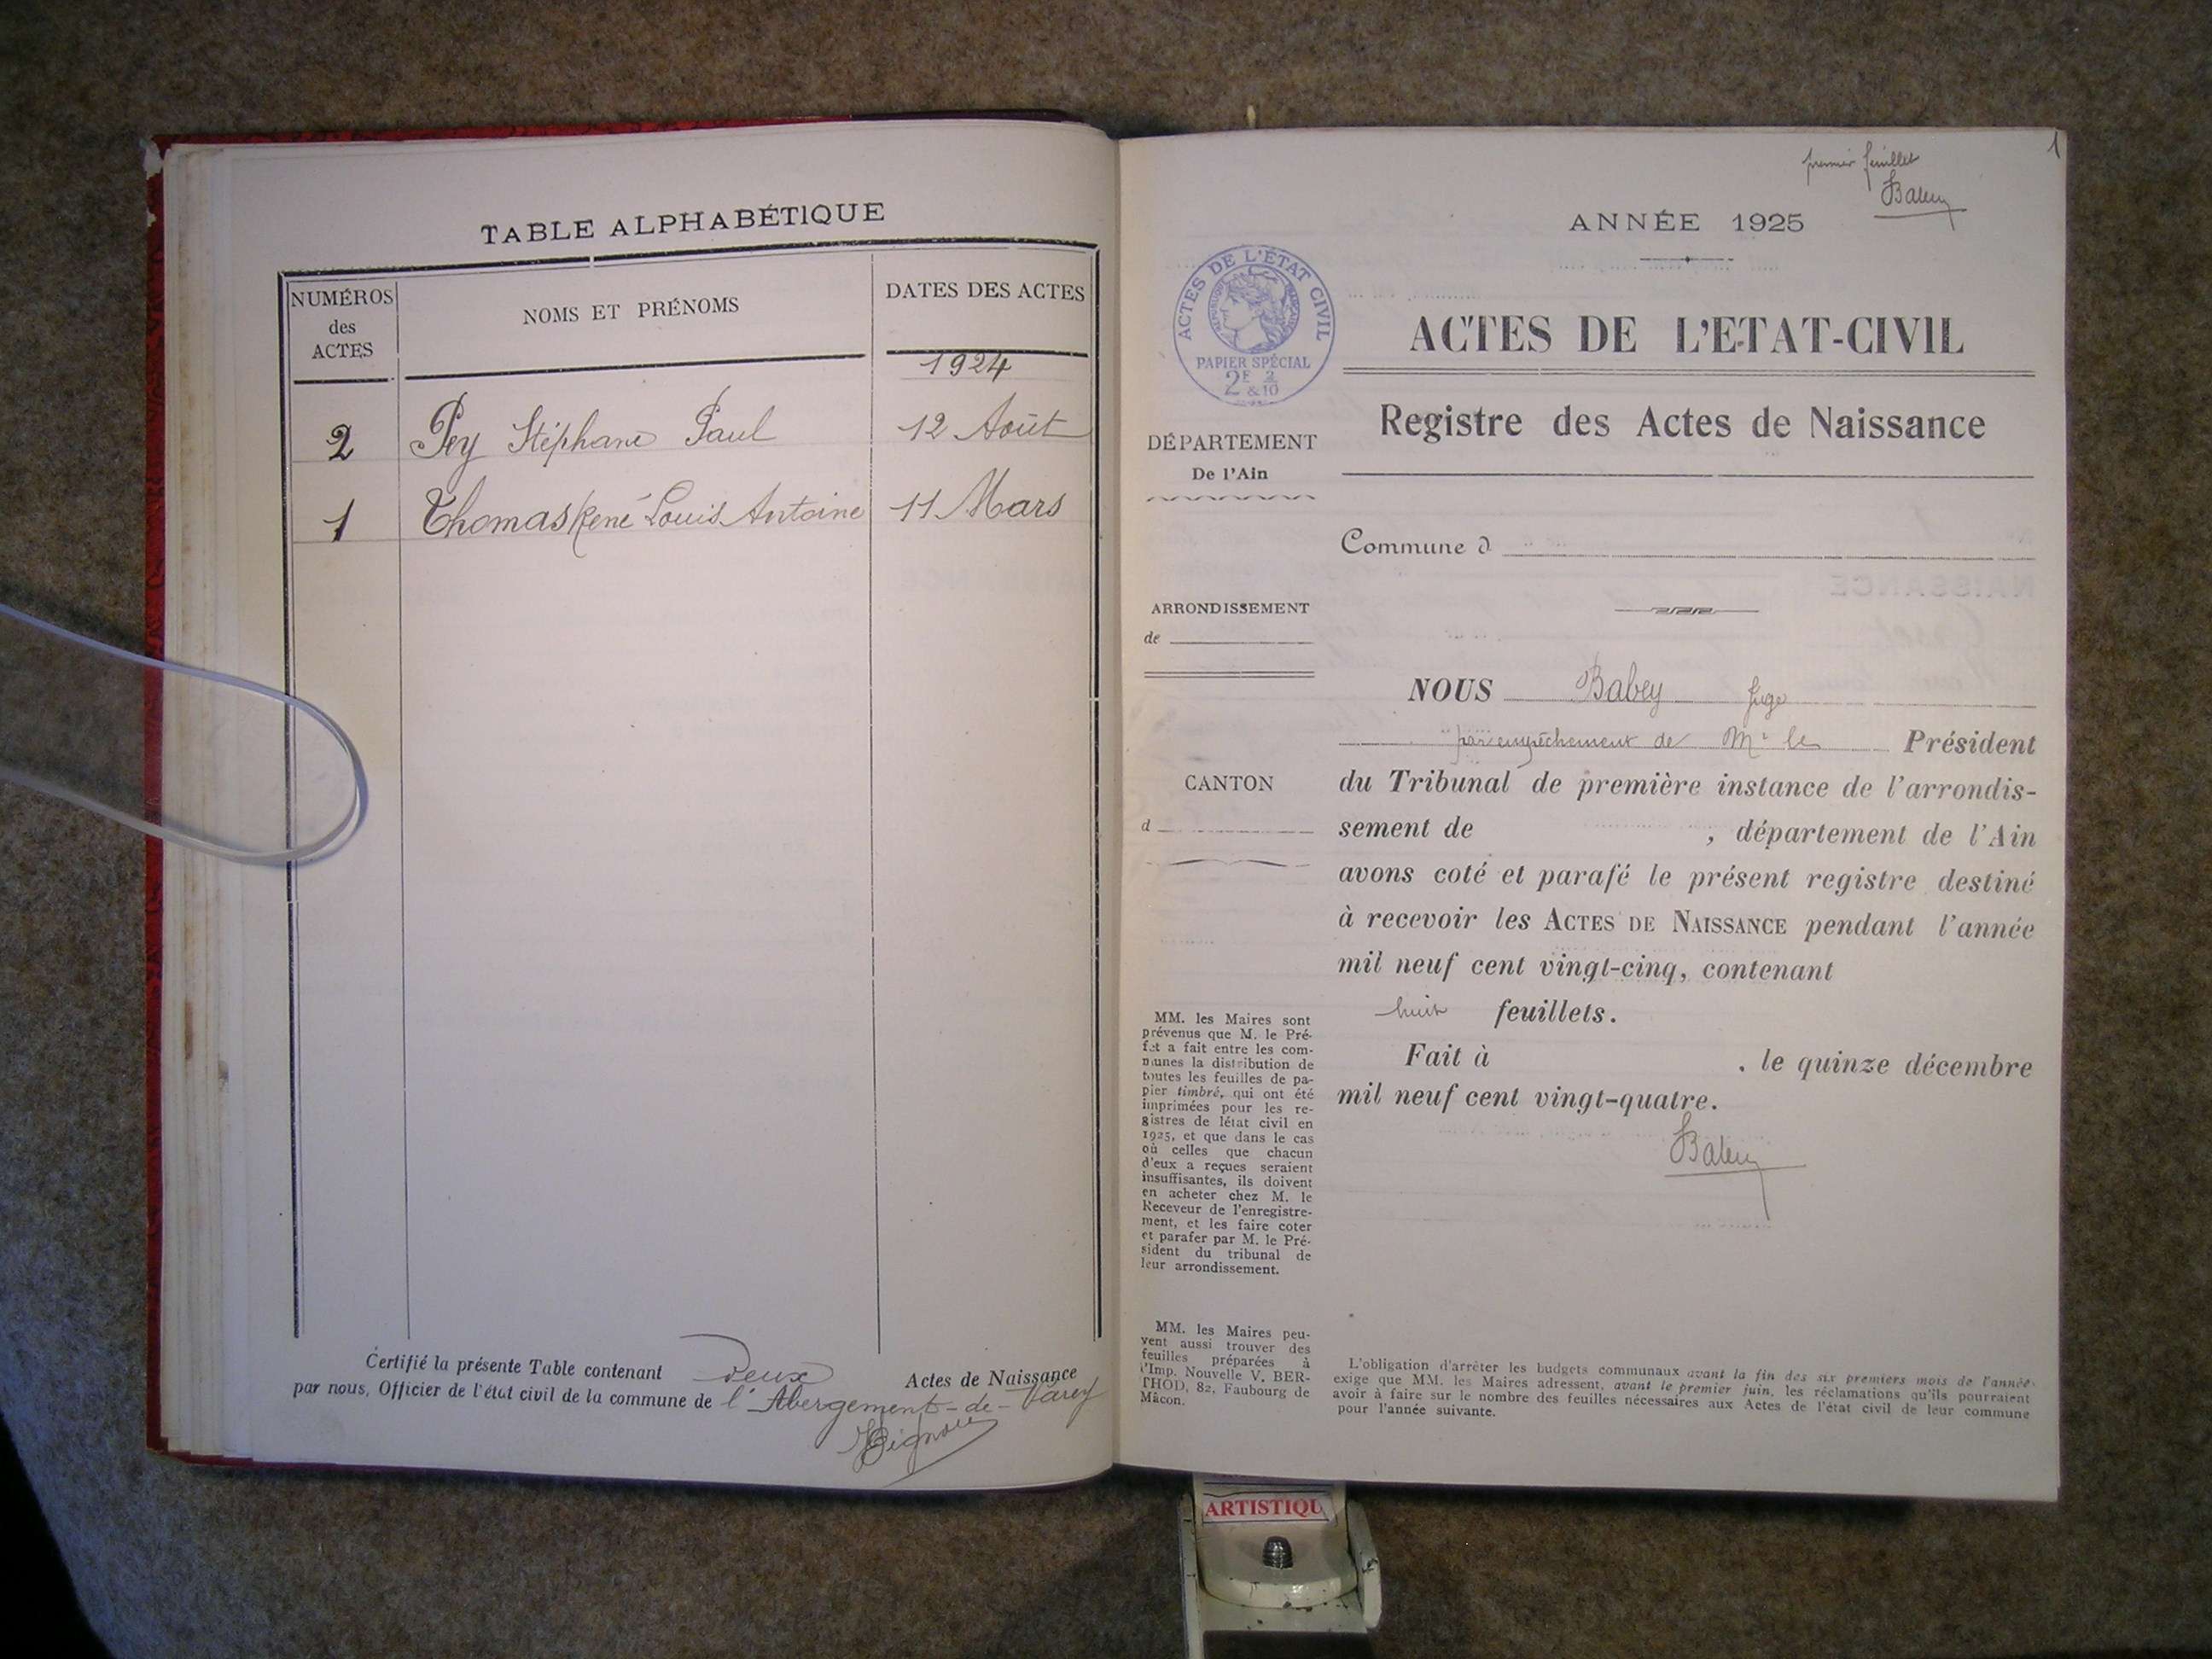 TABLE ALPHABÉTIQUE
NUMÉROS
des
ACTES
NOMS ET PRÉNOMS
DATES DES ACTES
1924
2 Pey Stéphane Paul 12 Août
1 Thomas René Louis Antoine 11 Mars
Certifié la présente Table contenant Deux Actes de Naissance
par nous, Officier de l'état civil de la commune de l'Abergement-de-Varey
1
premier feuillet
Babey
ANNÉE 1925
ACTES DE L'ÉTAT CIVIL
RÉPUBLIQUE FRANÇAISE
PAPIER SPÉCIAL
2F & 2/10
ACTES DE L'ETAT-CIVIL
Registre des Actes de Naissance
DÉPARTEMENT
De l'Ain
Commune d
ARRONDISSEMENT
de
CANTON
d
NOUS Babey Juge
par empêchement de Mr le Président
du Tribunal de première instance de l'arrondis-
sement de , département de l'Ain
avons coté et parafé le présent registre destiné
à recevoir les ACTES DE NAISSANCE pendant l'année
mil neuf cent vingt-cinq, contenant
huit feuillets.
Fait à , le quinze décembre
mil neuf cent vingt-quatre.
Babey
MM. les Maires sont
prévenus que M. le Pré-
fet a fait entre les com-
munes la distribution de
toutes les feuilles de pa-
pier timbré, qui ont été
imprimées pour les re-
gistres de létat civil en
1925, et que dans le cas
où celles que chacun
d'eux a reçues seraient
insuffisantes, ils doivent
en acheter chez M. le
Receveur de l'enregistre-
ment, et les faire coter
et parafer par M. le Pré-
sident du tribunal de
leur arrondissement.
MM. les Maires peu-
vent aussi trouver des
feuilles préparées à
l'Imp. Nouvelle V. BER-
THOD, 82, Faubourg de
Mâcon.
L'obligation d'arrêter les budgets communaux avant la fin des six premiers mois de l'année
exige que MM. les Maires adressent, avant le premier juin, les réclamations qu'ils pourraient
avoir à faire sur le nombre des feuilles nécessaires aux Actes de l'état civil de leur commune
pour l'année suivante.
ARTISTIQU